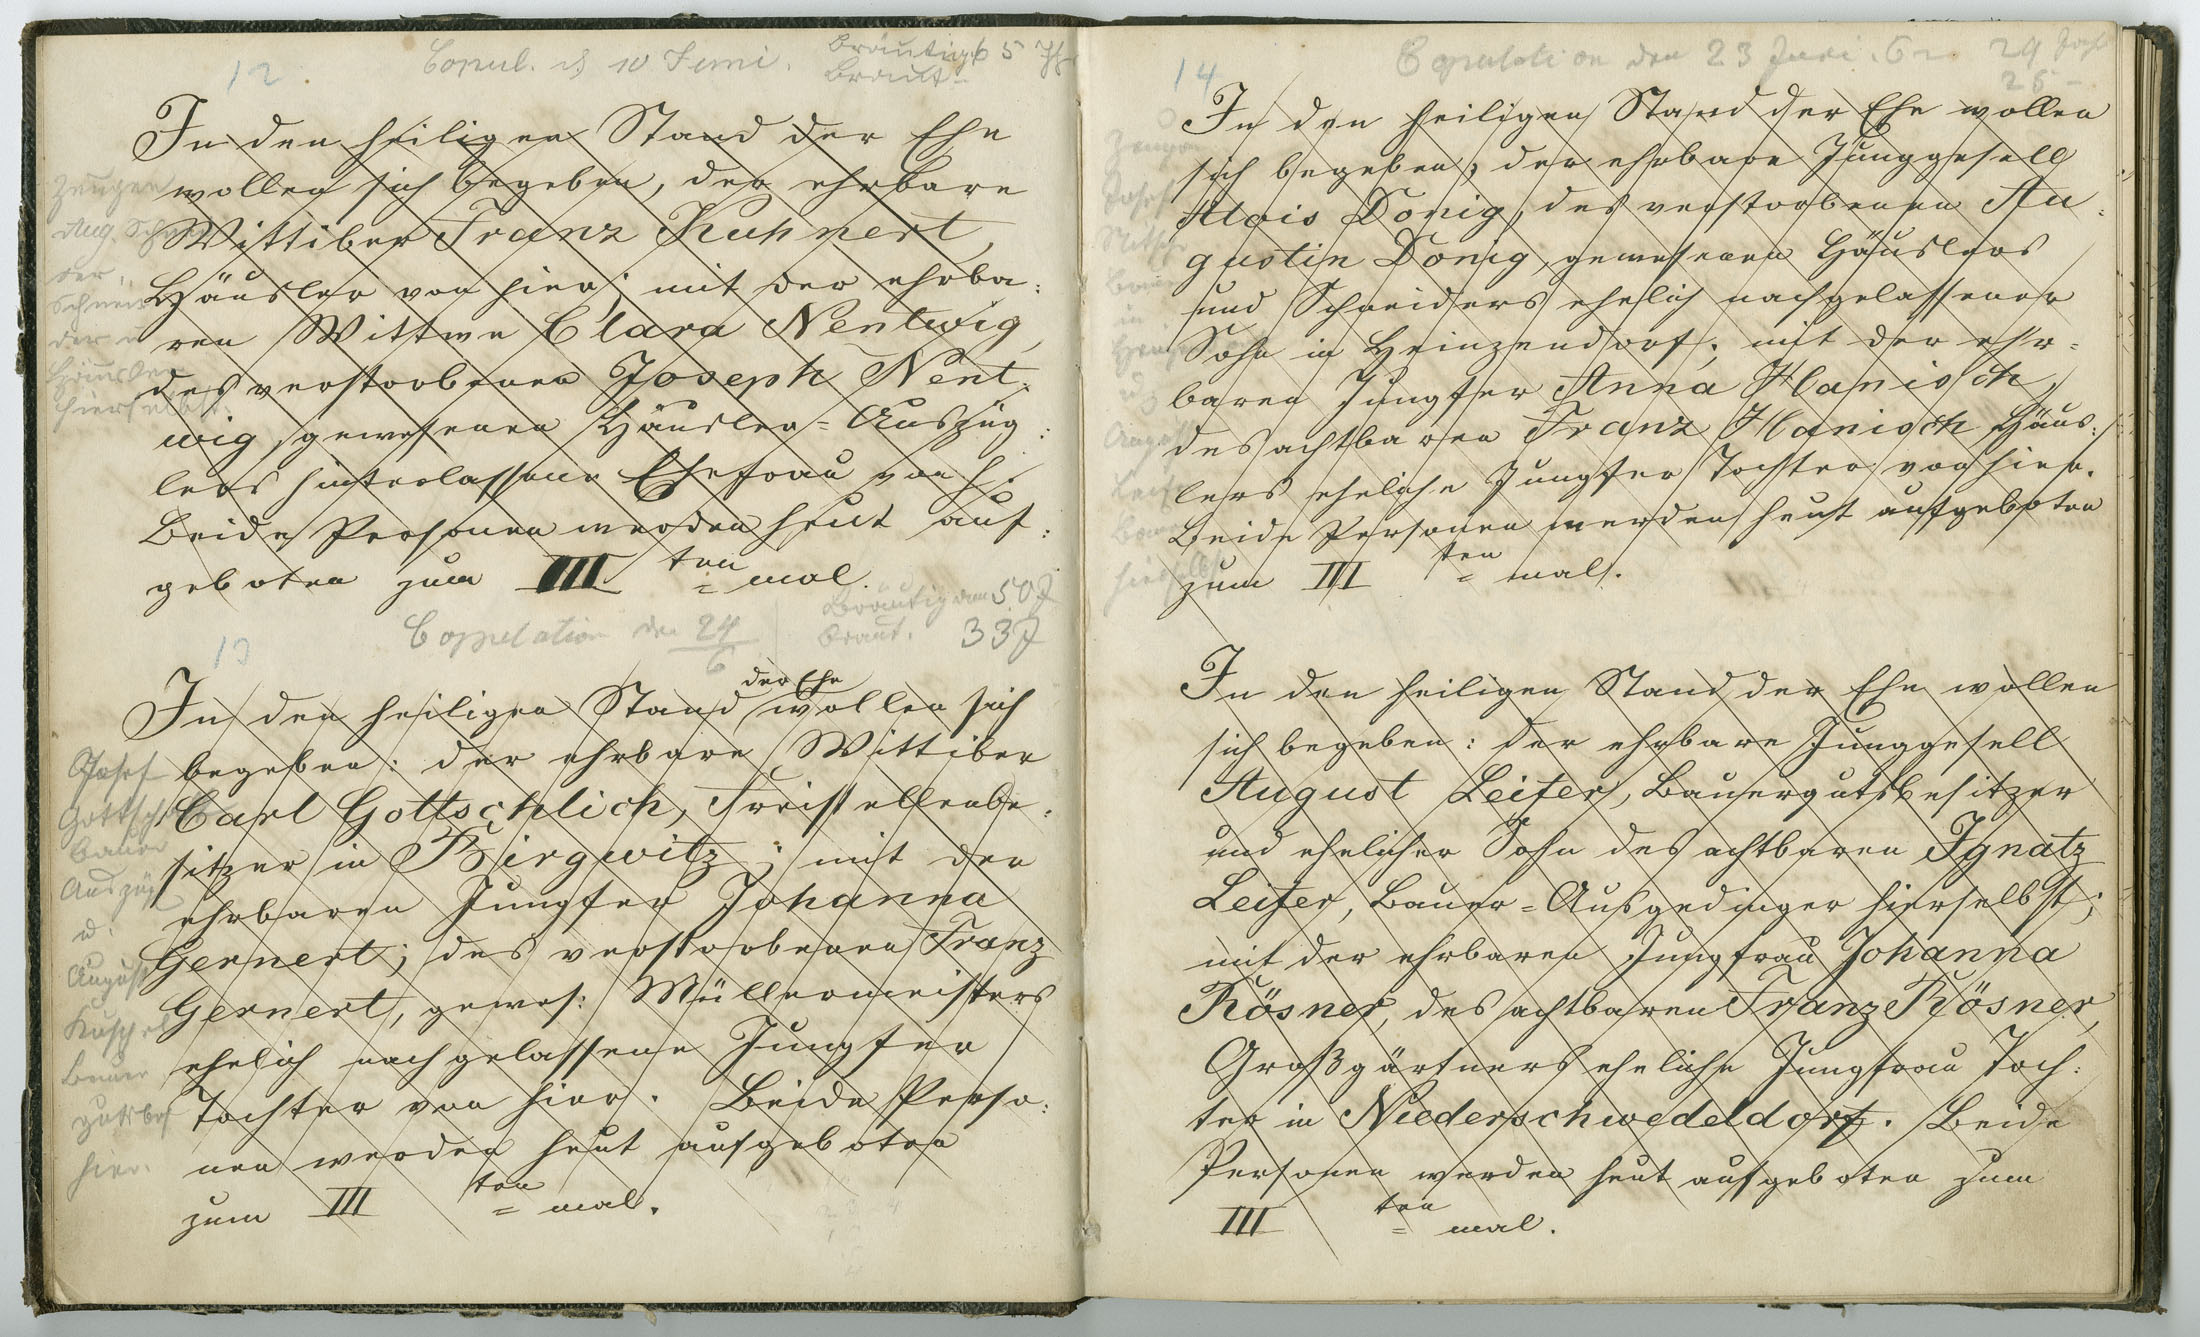 12
Copul. d. 10 Juni. Bräutig. 65 J.
Braut -
In den heiligen Stand der Ehe
wollen sich begeben, der ehrbare
Wittiber Franz Kuhnert,
Häusler von hier; mit der ehrba:
ren Wittwe Clara Nentwig,
des verstorbenen Joseph Nent:
wig, gewesenen Häusler=Auszüg:
lers hinterlassene Ehefrau von h.
Beide Personen werden heut auf:
geboten zum III ten = mal.
Zeugen
Aug.
Häusler
hierselbst.
13
Copulation den 24/6
Bräutigam 50 J
Braut. 33 J
In den heiligen Stand der Ehe wollen sich
begeben: der ehrbare Wittiber
Carl Gottschlich, Freistellenbe:
sitzer in Birgwitz; mit der
ehrbaren Jungfer Johanna
Gernert; des verstorbenen Franz
Gernert, gewes: Müllermeisters
ehelich nachgelassene Jungfer
Tochter von hier. Beide Perso:
nen werden heut aufgeboten
zum III ten = mal.
Josef
Gottsch
Bauer
Auszüg
u.
August
Kuschel
Bauer
gutsbes
hier.
14
Copulation den 23 Juni. 62 24 Jahr
25 -
In den heiligen Stand der Ehe wollen
sich begeben; der ehrbare Junggesell
Alois Donig, des verstorbenen Au:
gustin Donig, gewesenen Häuslers
und Schneiders ehelich nachgelassener
Sohn in Heinzendorf; mit der ehr=
baren Jungfer Anna Hanisch,
des achtbaren Franz Hanisch Häus:
lers eheliche Jungfer Tochter von hier.
Beide Personen werden heut aufgeboten
zum III ten = mal.
Zeugen
Josef
August
hierselbst
In den heiligen Stand der Ehe wollen
sich begeben: der ehrbare Junggesell
August Leifer, Bauergutsbesitzer
und ehelicher Sohn des achtbaren Ignatz
Leifer, Bauer=Ausgedinger hierselbst;
mit der ehrbaren Jungfrau Johanna
Rösner, des achtbaren Franz Rösner,
Großgärtners eheliche Jungfrau Toch:
ter in Niederschwedeldorf. Beide
Personen werden heut aufgeboten zum
III ten = mal.